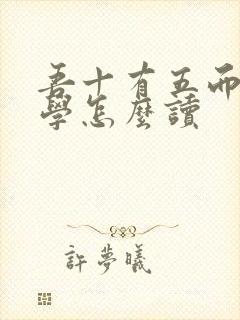 吾十有五而
學怎麼讀
許夢曦